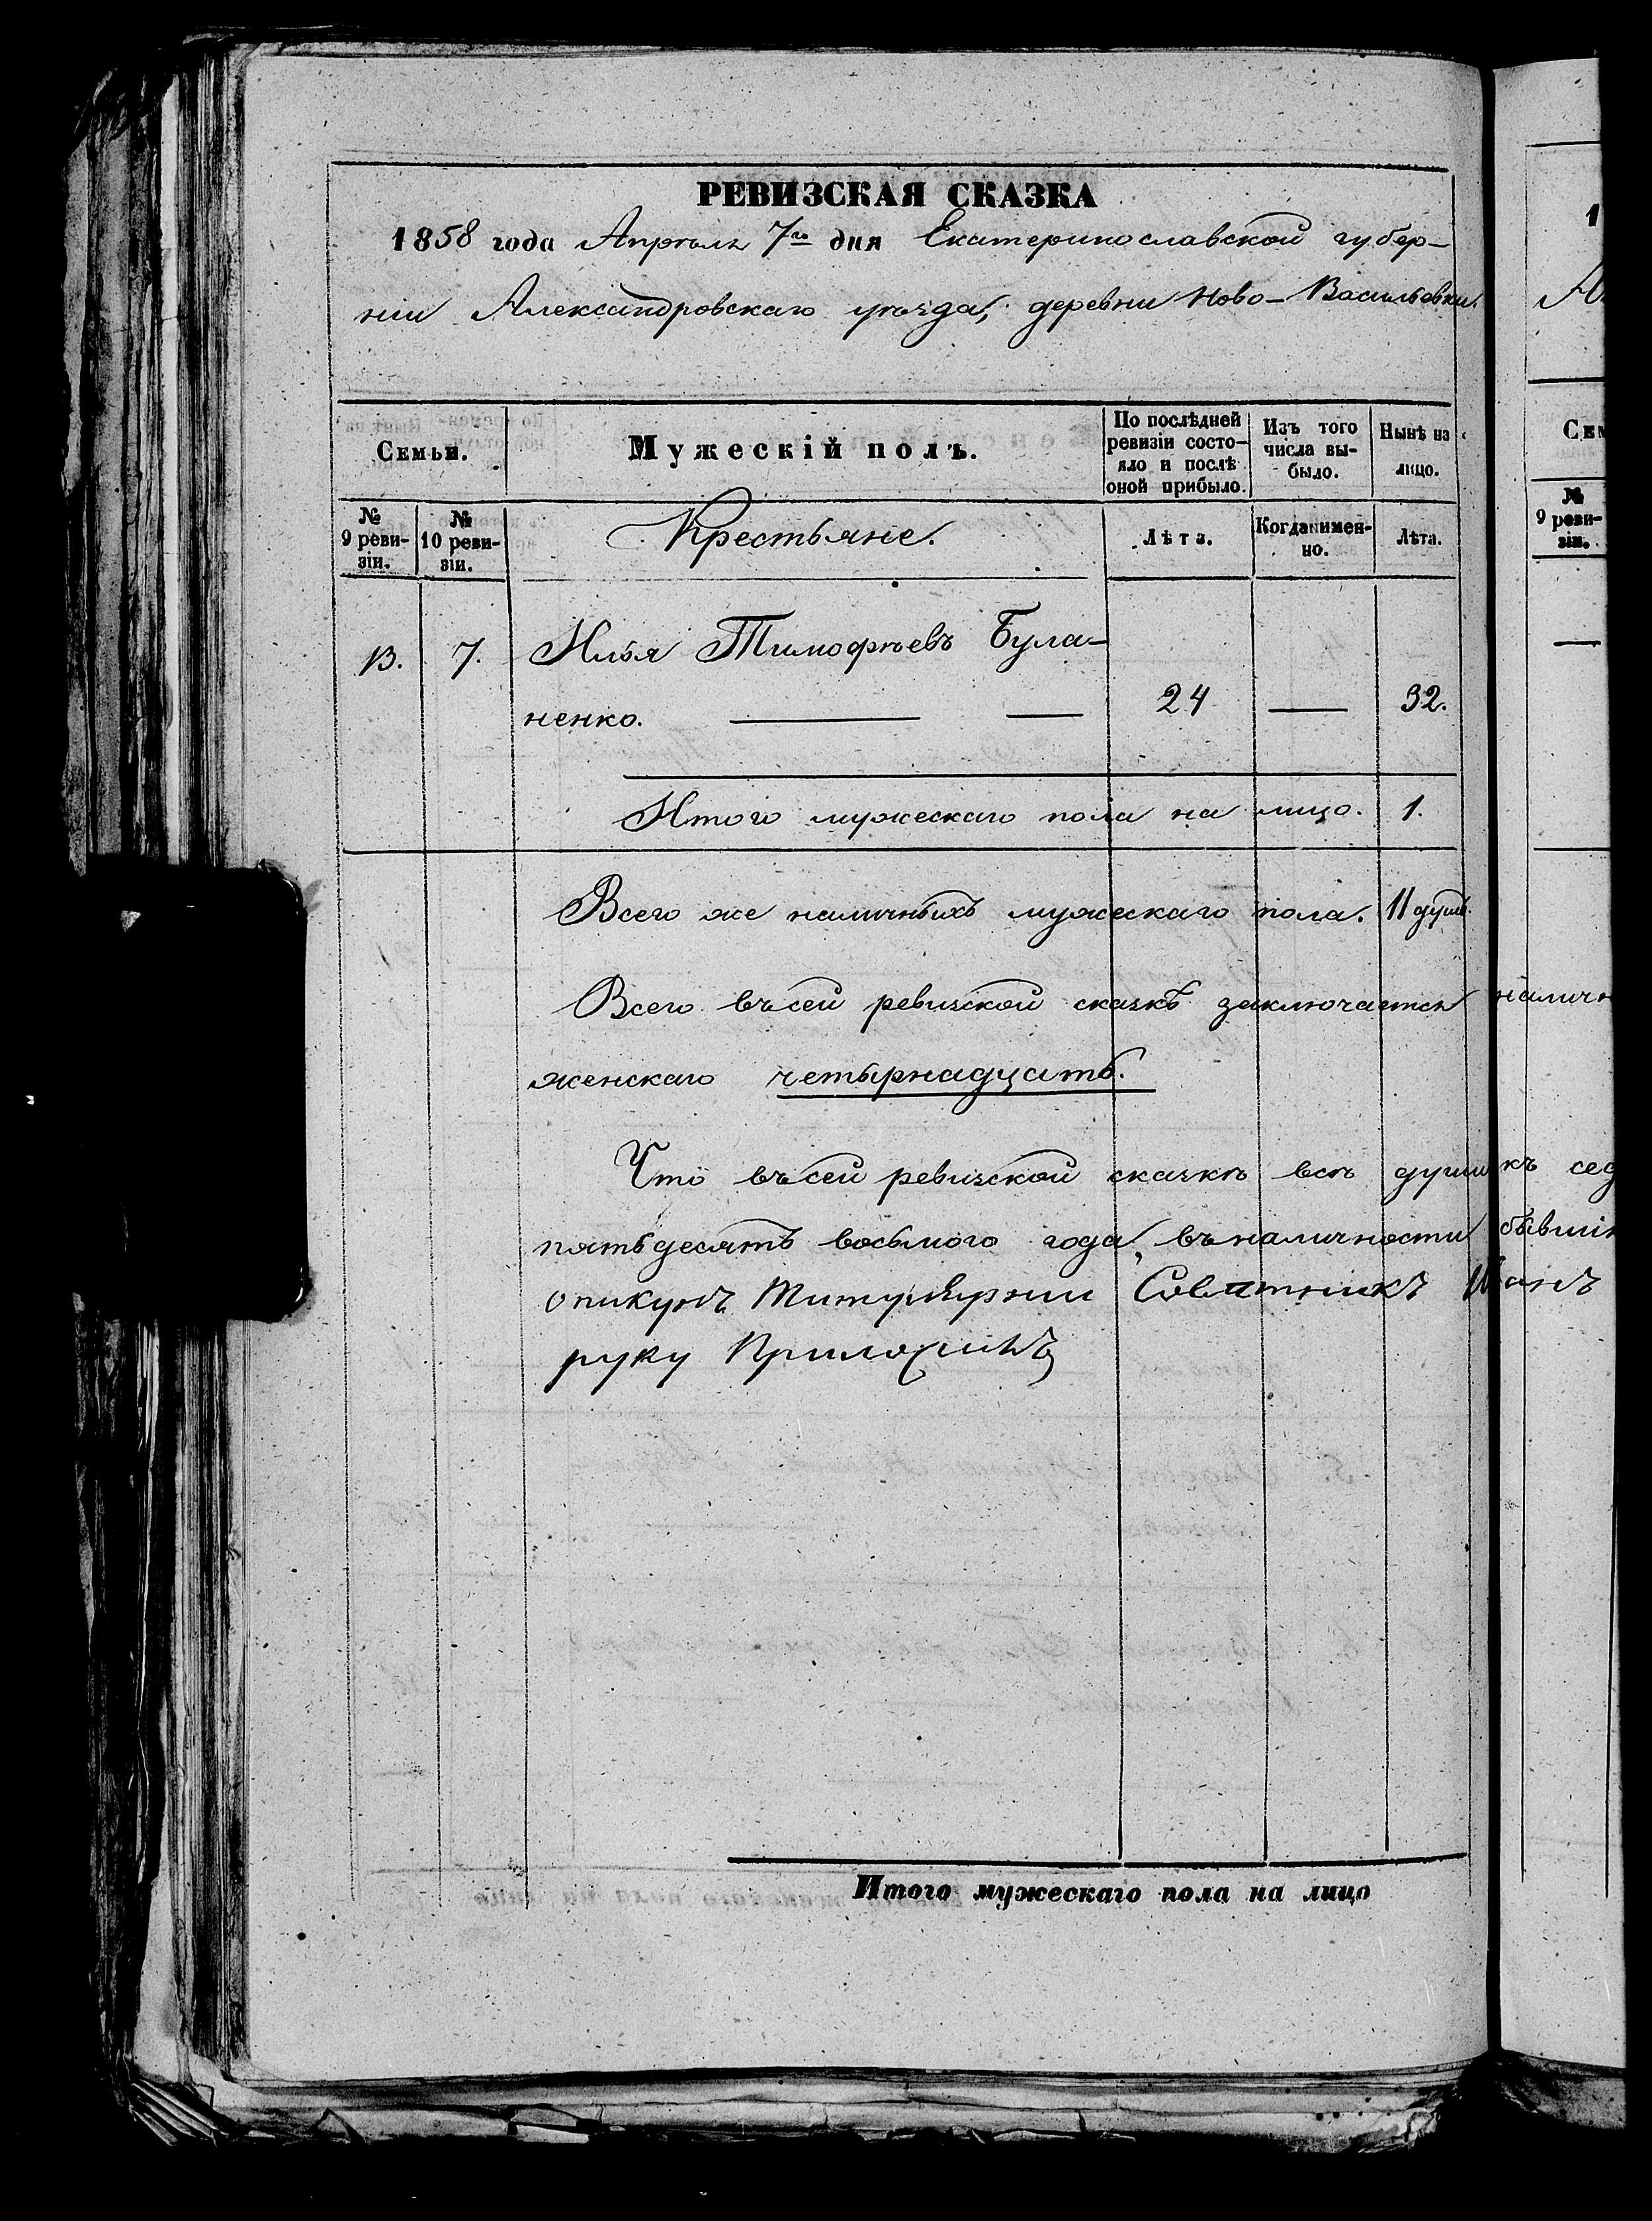 РЕВИЗСКАЯ СКАЗКА
1858 года Апрѣля 7го дня Екатеринославской губер-
ніи Александровскаго уѣзда, деревни Ново-Васильевки.
Семьи.
Мужескій полъ.
По послѣдней ревизіи состо-
яло и послѣ оной прибыло.
Изъ того числа вы-
было.
Нынѣ на лицо.
№ 9 реви-
зіи.
№ 10 реви-
зіи.
Крестьяне.
Лѣта.
Когда имен-
но.
Лѣта.
13. 7. Илья Тимофѣевъ Була-
ненко. — — 24 — 32.
Итого мужескаго пола на лицо. 1.
Всего же наличныхъ мужескаго пола. 11 душъ.
Всего въ сей ревизской сказкѣ заключается налич
женскаго четырнадцать.
Что въ сей ревизской сказкѣ всѣ души къ сед
пятьдесятъ восьмого года, въ наличности бывші
опикунъ Титулярнии Советникъ
руку Приложилъ
Итого мужескаго пола на лицо
1
А
Сем
№
9 реви-
зіи.
—